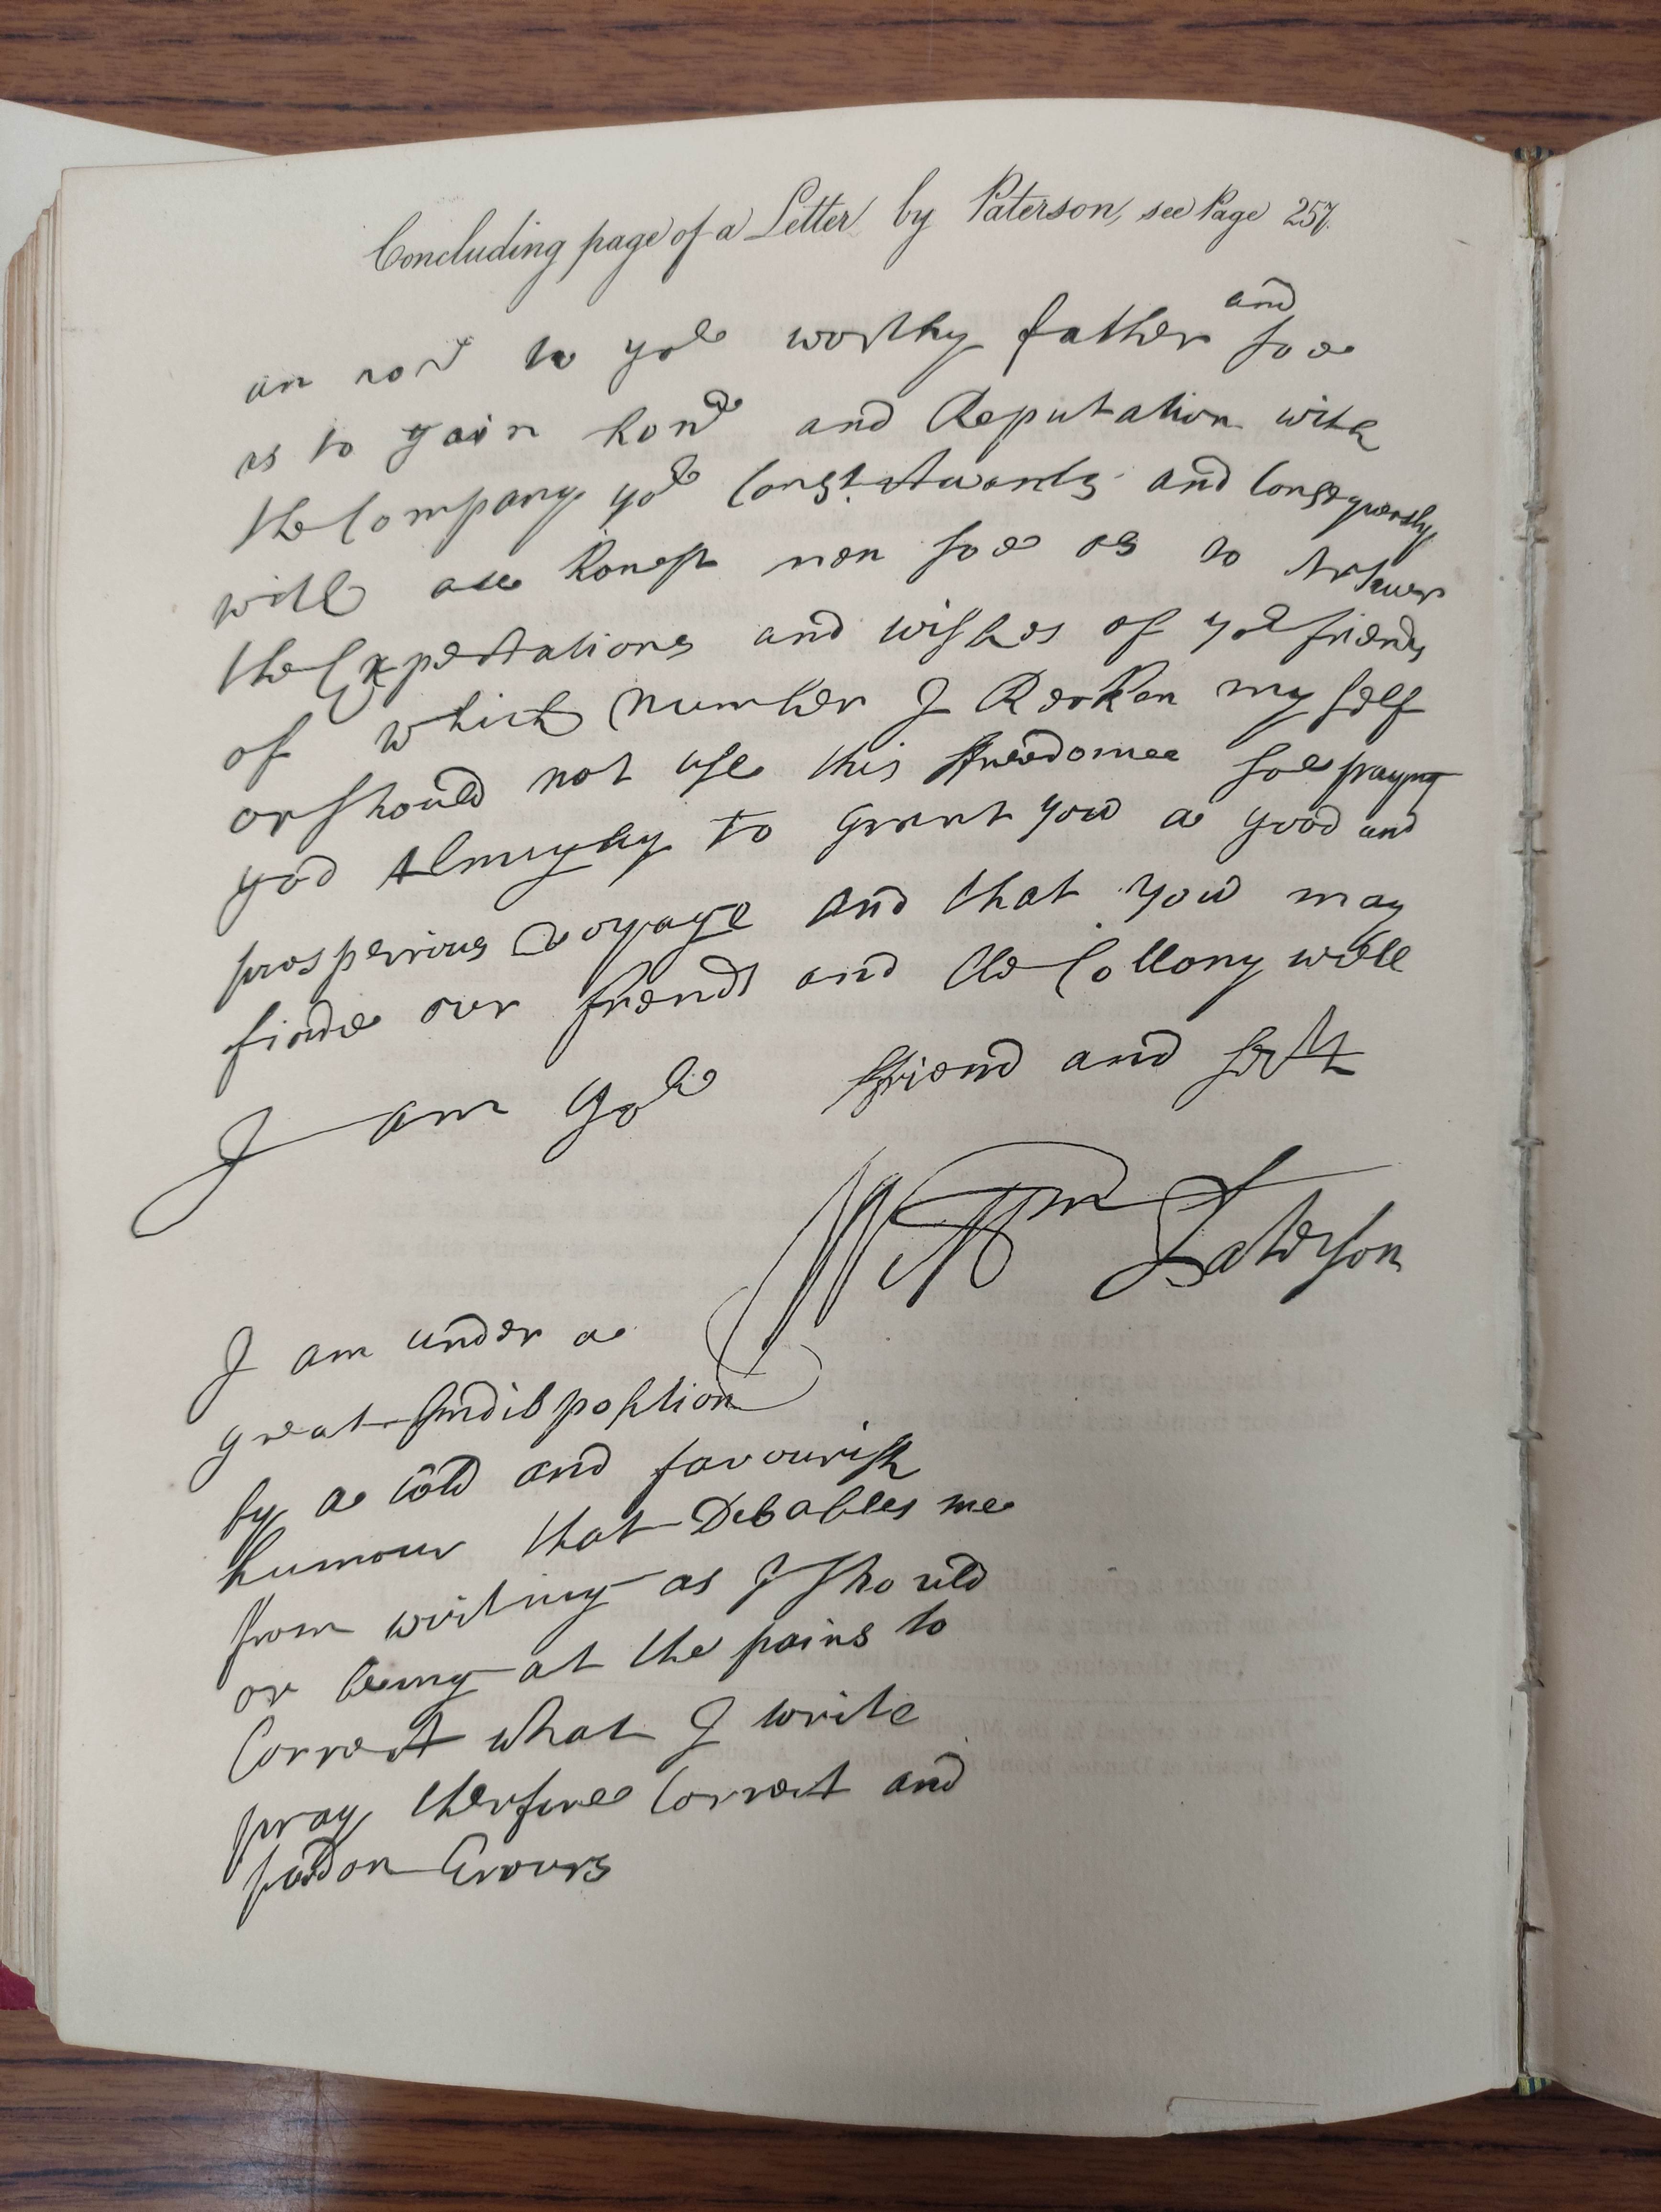 Concluding page of a Letter by Paterson, see Page 257.
and
an to yor worthy father soe
as to gain honr and Reputation with
the Company yor Constituants and Consequently
with all honest men soe as to Answer
the Expectations and wishes of yor friends
of which Number I Reckon my self
or should not use this freedomee soe praying
god to grant you a good and
prosperious voyage and that you may
finde our friends and the Collony well
I am Yor friend and sert
Willm Paterson
I am under a
great Indisposition
by a cold and favourish
humour that Disables me
from writing as I should
or being at the pains to
Correct what I write
pray therfore Correct and
pardon Errours